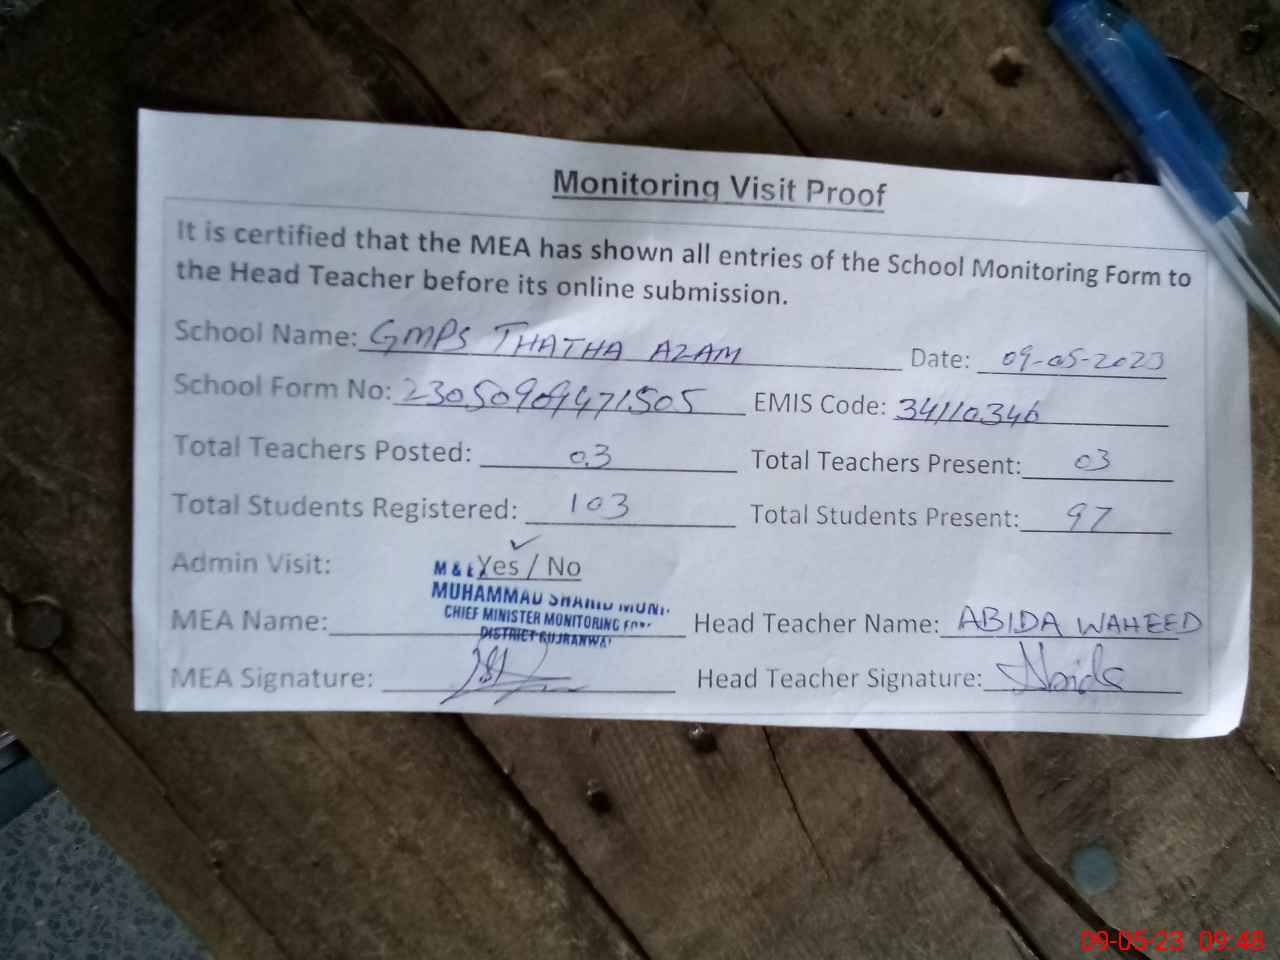 Monitoring Visit Proof
It is certified that the MEA has shown all entries of the School Monitoring Form to
the Head Teacher before its online submission.
School Name: GMPS THATHA AZAM Date: 09-05-2023
School Form No: 23050909471505 EMIS Code: 34110346
Total Teachers Posted: 03 Total Teachers Present: 03
Total Students Registered: 103 Total Students Present: 97
Admin Visit: Yes / No
M & E
MUHAMMAD SHAHID
CHIEF MINISTER MONITORING
DISTRICT GUJRANWALA
MEA Name: Head Teacher Name: ABIDA WAHEED
MEA Signature: Head Teacher Signature: Abida
09-05-23 09:48